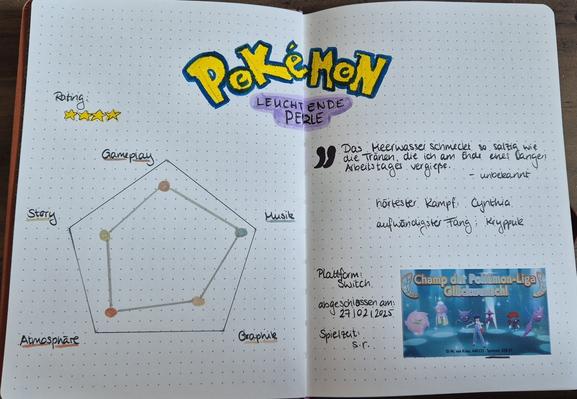 POKÉMON
LEUCHTENDE
PERLE
Rating:
Gameplay
Story
Musik
Atmosphäre
Graphik
Das Meerwasser schmeckt so salzig wie
die Tränen, die ich am Ende eines langen
Arbeitstages vergieße.
- unbekannt
härtester Kampf: Cynthia
aufwändigster Fang: Kryppuk
Plattform:
Switch
abgeschlossen am:
27|02|2025
Spielzeit:
s.r.
Champ der Pokémon-Liga
Glückwunsch!